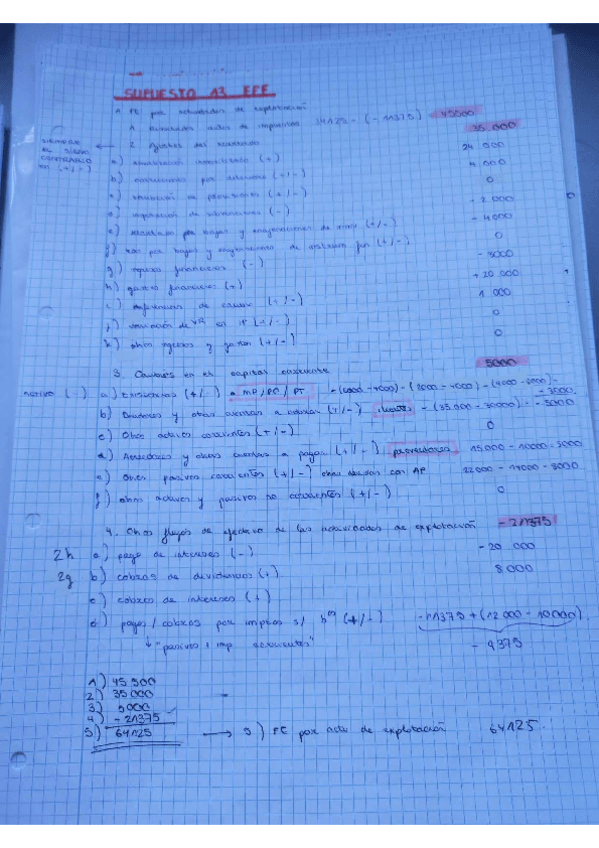 SUPUESTO 13 EFE
A. FE por actividades de explotación
1. Resultado antes de impuestos 34125 - (-11375) = 45500
2. Ajustes del resultado 35.000
SIEMPRE EL SIGNO CONTRARIO en (+/-)
a) amortización inmovilizado (+) 24 000
b) correcciones por deterioro (+/-) 4 000
c) variación de provisiones (+/-) 0
d) imputación de subvenciones (-) - 2 000
e) resultados por bajas y enajenaciones de inmov (+/-) - 4000
f) rdos por bajas y enajenaciones de instrum fin (+/-) 0
g) ingresos financieros (-) - 8000
h) gastos financieros (+) + 20 000
i) diferencias de cambio (+/-) 1 000
j) variación de VR en IF (+/-) 0
k) otros ingresos y gastos (+/-) 0
3. Cambios en el capital corriente 5000
activo (-) a) Existencias (+/-) MP/PC/PT - (6000 - 4000) - (2000 - 4000) - (4000 - 
b) Deudores y otras cuentas a cobrar (+/-) clientes - (35 000 - 30000) = - 5000
c) Otros activos corrientes (+/-) 0
d) Acreedores y otras cuentas a pagar (+/-) proveedores 15000 - 10000 = 5000
e) Otros pasivos corrientes (+/-) otras deudas con AP 22000 - 14000 = 8000
f) otros activos y pasivos no corrientes (+/-) 0
4. Otros flujos de efectivo de las actividades de explotación - 21375
2h a) pago de intereses (-) - 20 000
2g b) cobros de dividendos (+) 8 000
c) cobros de intereses (+)
d) pagos / cobros por imptos s/ bº (+/-) - 11375 + (12 000 - 10000)
↓ "pasivos x imp. corrientes" - 9375
1) 45 500
2) 35 000
3) 5000
4) - 21375
5) 64125 → 5) FE por activ de explotación 64125